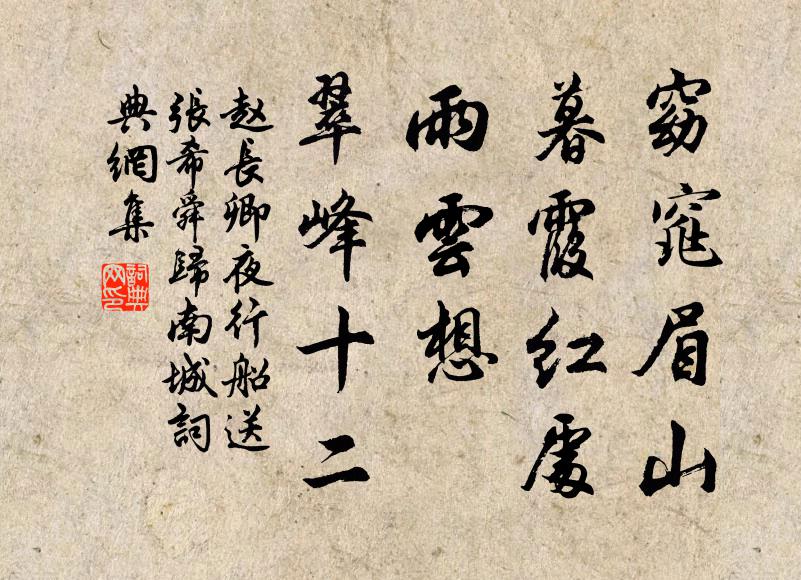 窈窕眉山
暮霞紅處
雨雲想
翠峰十二
赵長卿夜行船送
張希舜歸南城詞
典網集
詞典
网印